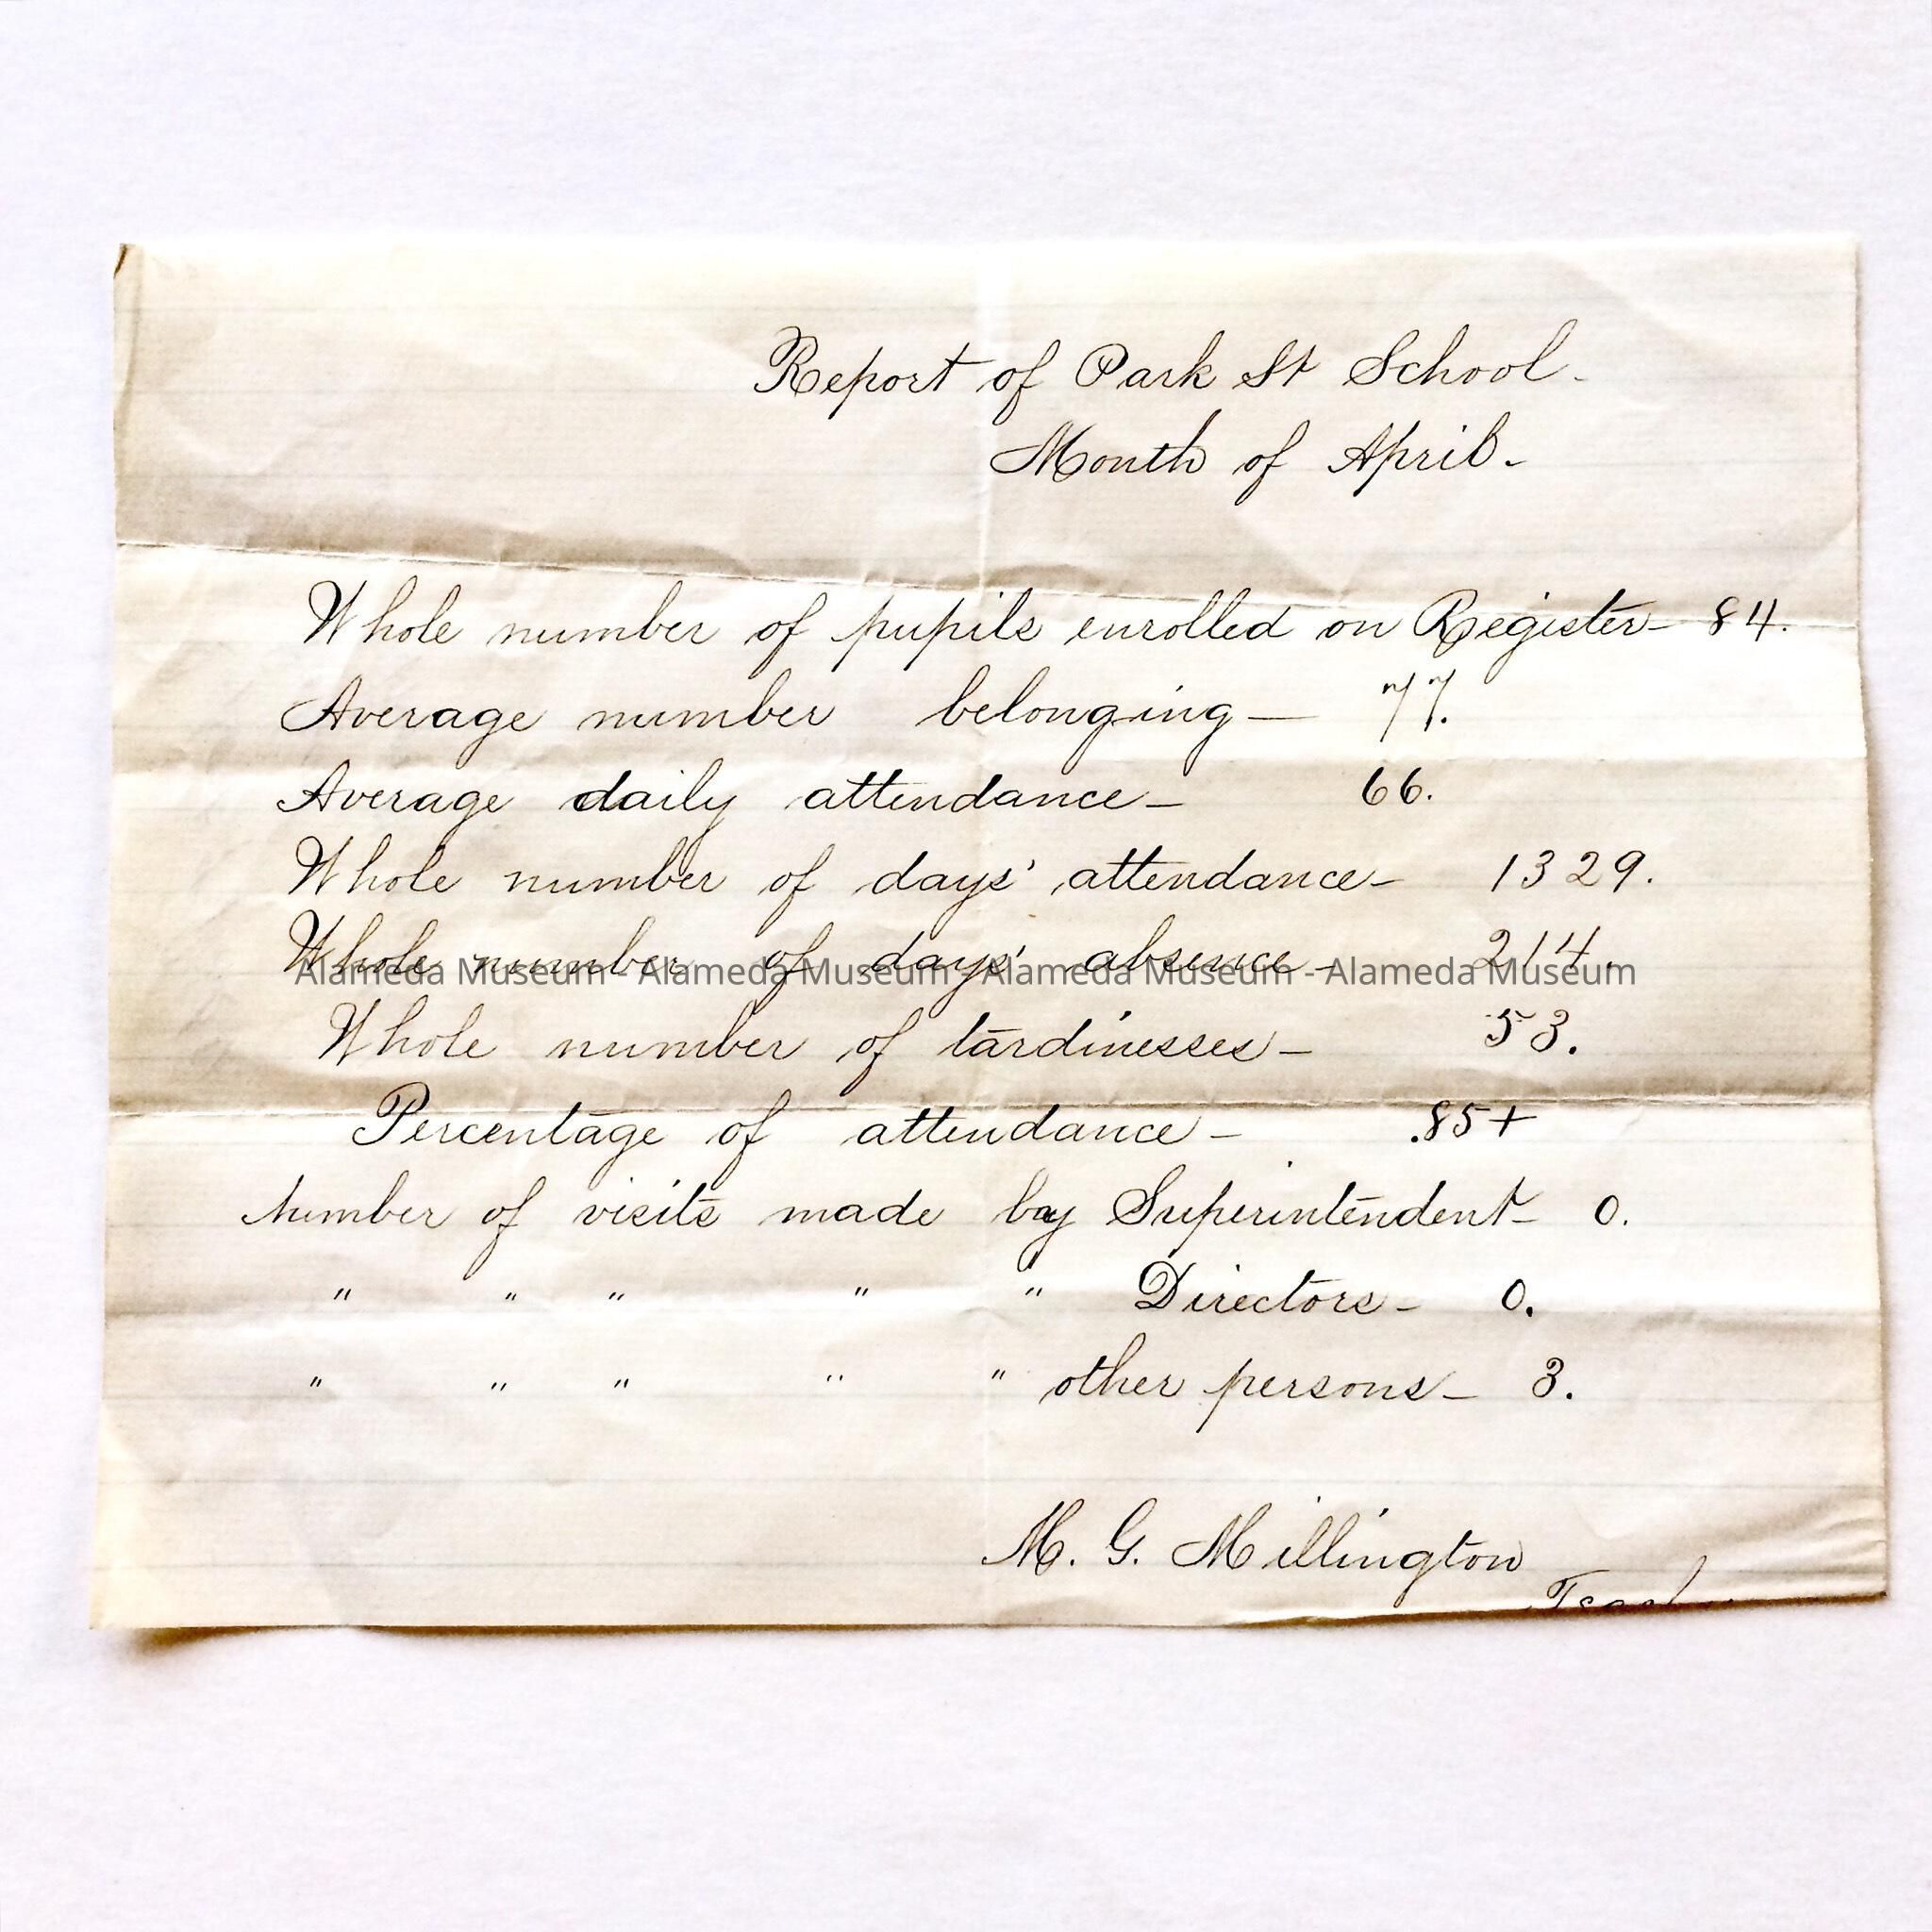 Report of Park St School.
Month of April.
Whole number of pupils enrolled on Register — 84.
Average number belonging — 77.
Average daily attendance — 66.
Whole number of days' attendance — 1329.
Whole number of days' absence — 214.
Alameda Museum - Alameda Museum - Alameda Museum - Alameda Museum
Whole number of tardinesses — 53.
Percentage of attendance — .85+
Number of visits made by Superintendent — 0.
" " " " " Directors — 0.
" " " " " other persons — 3.
M. G. Millington